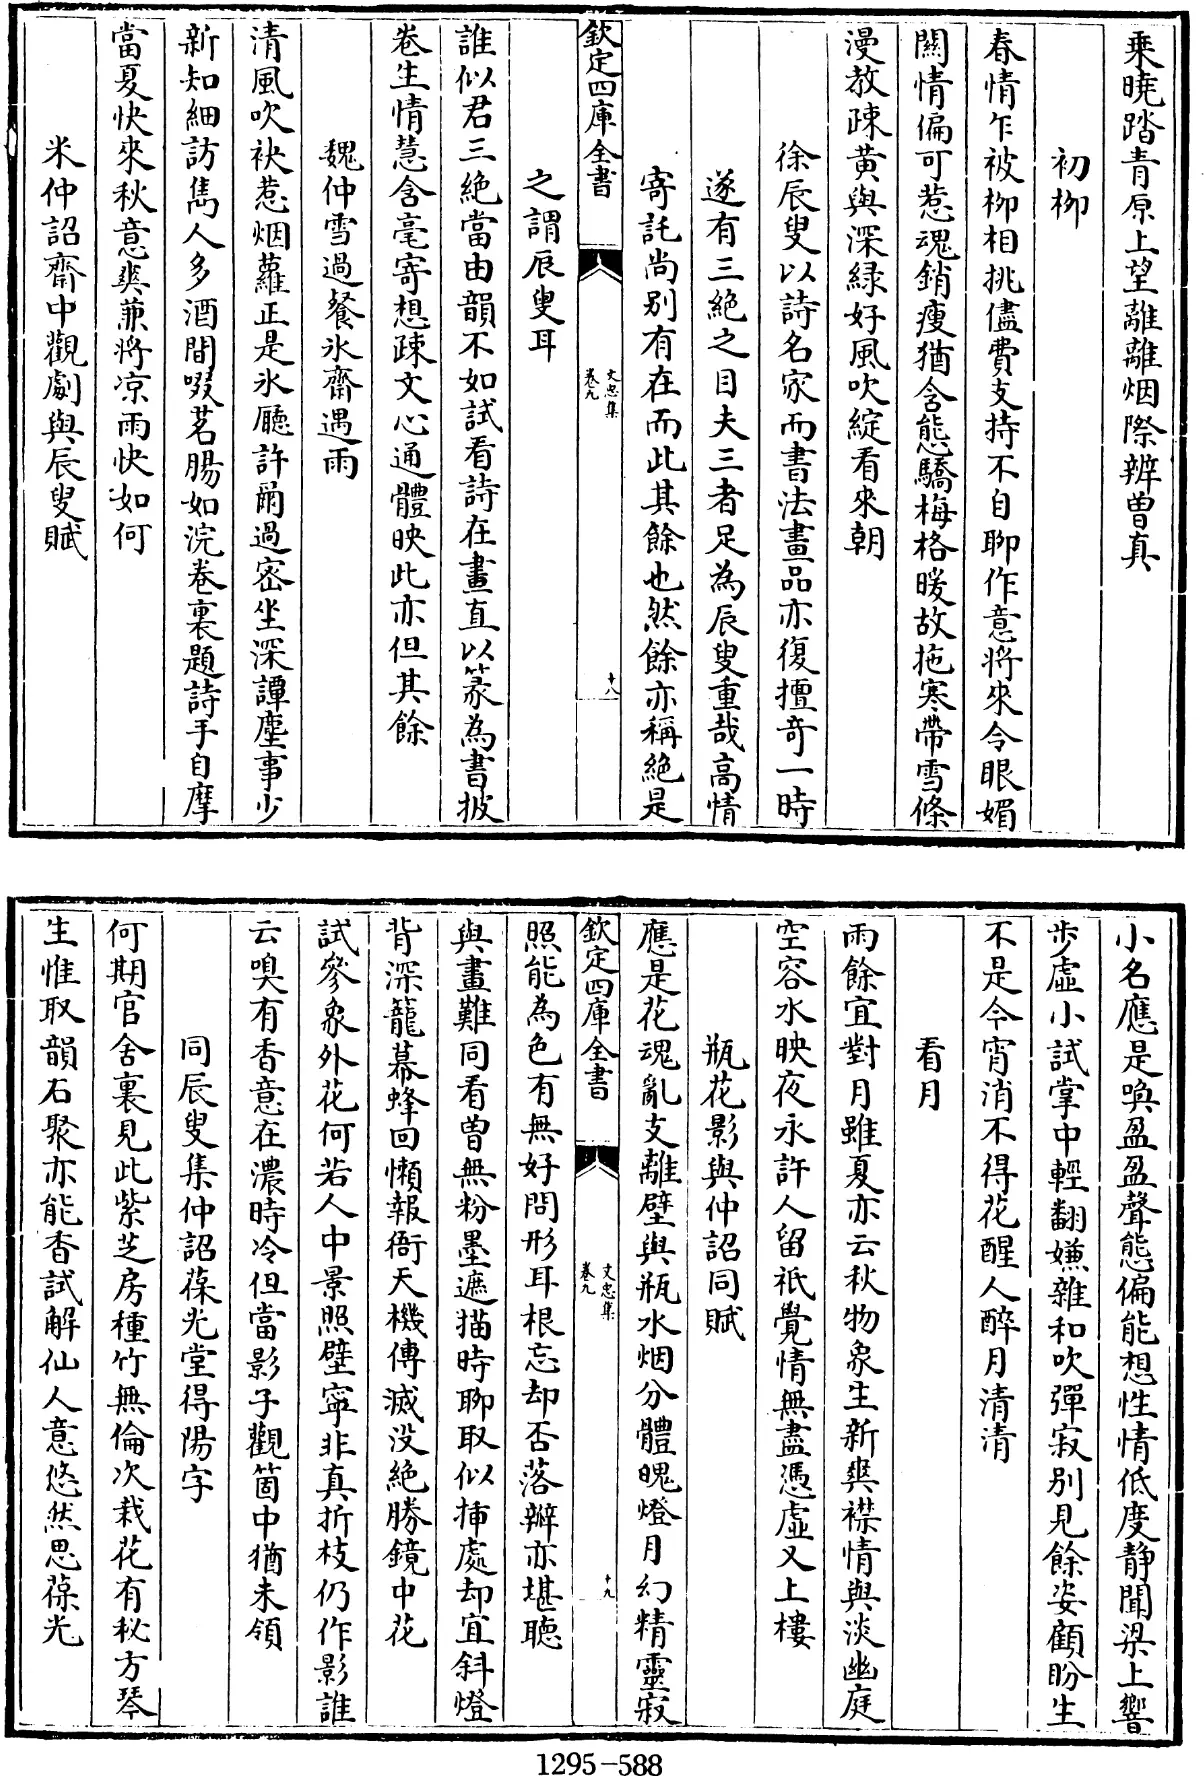 乘曉踏青原上望離離烟際辨曽真
初栁
春情乍被栁相挑儘費支持不自聊作意將來令眼媚
關情偏可惹魂銷瘦猶含態驕梅格暖故拖寒帶雪條
漫教疎黄與深緑好風吹綻看來朝
徐辰叟以詩名家而書法畫品亦復擅竒一時
遂有三絶之目夫三者足為辰叟重哉髙情
寄託尚别有在而此其餘也然餘亦稱絶是
欽定四庫全書
文忠集
卷九
十八
之謂辰叟耳
誰似君三絶當由韻不如試看詩在畫直以篆為書披
卷生情慧含毫寄想疎文心通體映此亦但其餘
魏仲雪過餐氷齋遇雨
清風吹袂惹烟蘿正是氷廳許爾過密坐深譚塵事少
新知細訪雋人多酒間啜茗腸如浣卷裏題詩手自摩
當夏快來秋意爽兼將凉雨快如何
米仲詔齋中觀劇與辰叟賦
小名應是喚盈盈聲態偏能想性情低度静聞梁上響
步虛小試掌中輕翻嫌雜和吹彈寂别見餘姿顧盼生
不是今宵消不得花醒人醉月清清
看月
雨餘宜對月雖夏亦云秋物象生新爽襟情與淡幽庭
空容水映夜永許人留祇覺情無盡憑虛又上樓
瓶花影與仲詔同賦
應是花魂亂支離壁與瓶水烟分體魄燈月幻精靈寂
欽定四庫全書
文忠集
卷九
十九
照能為色有無好問形耳根忘却否落辧亦堪聴
與畫難同看曽無粉墨遮描時聊取似揷處却宜斜燈
背深籠幕蜂回懶報衙天機傳滅没絶勝鏡中花
試參象外花何若人中景照壁寜非真折枝仍作影誰
云嗅有香意在濃時冷但當影子觀箇中猶未領
同辰叟集仲詔葆光堂得陽字
何期官舍裏見此紫芝房種竹無倫次栽花有秘方琴
生惟取韻石聚亦能香試解仙人意悠然思葆光
1295-588